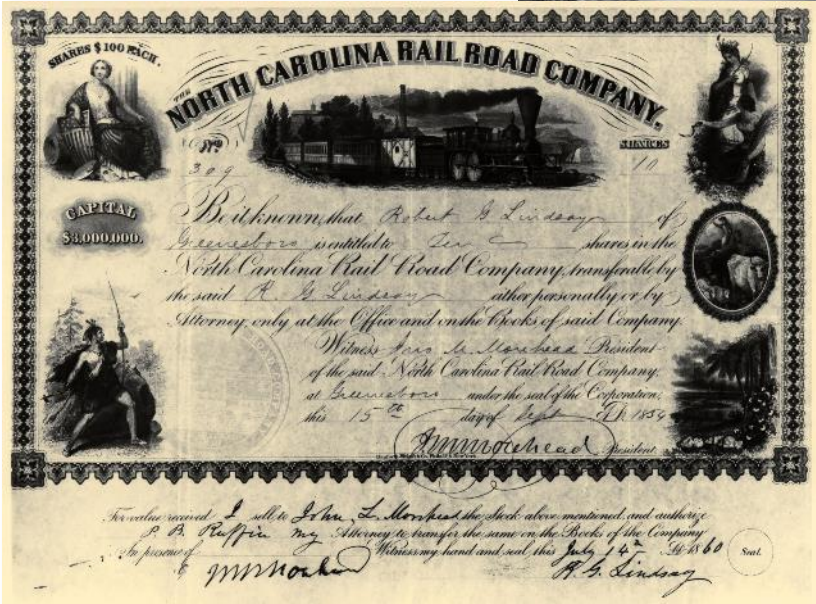 SHARES $100 EACH.
THE
NORTH CAROLINA RAIL ROAD COMPANY.
No.
309
SHARES
10
CAPITAL
$3,000,000.
Be it known, that Robert G Lindsay of
Greensboro is entitled to Ten shares in the
North Carolina Rail Road Company, transferable by
the said R. G Lindsay either personally or by
Attorney, only at the Office and on the Books of said Company.
Witness Jno M. Morehead President
of the said North Carolina Rail Road Company,
at Greensboro under the seal of the Corporation,
this 15th day of Sept A.D. 1854
J M Morehead President
For value received I sell to John L. Morehead the Stock above mentioned, and authorize
P. B. Ruffin my Attorney to transfer the same on the Books of the Company
In presence of Witness my hand and seal this July 14th A.D. 1860 Seal.
J M Morehead R. G. Lindsay